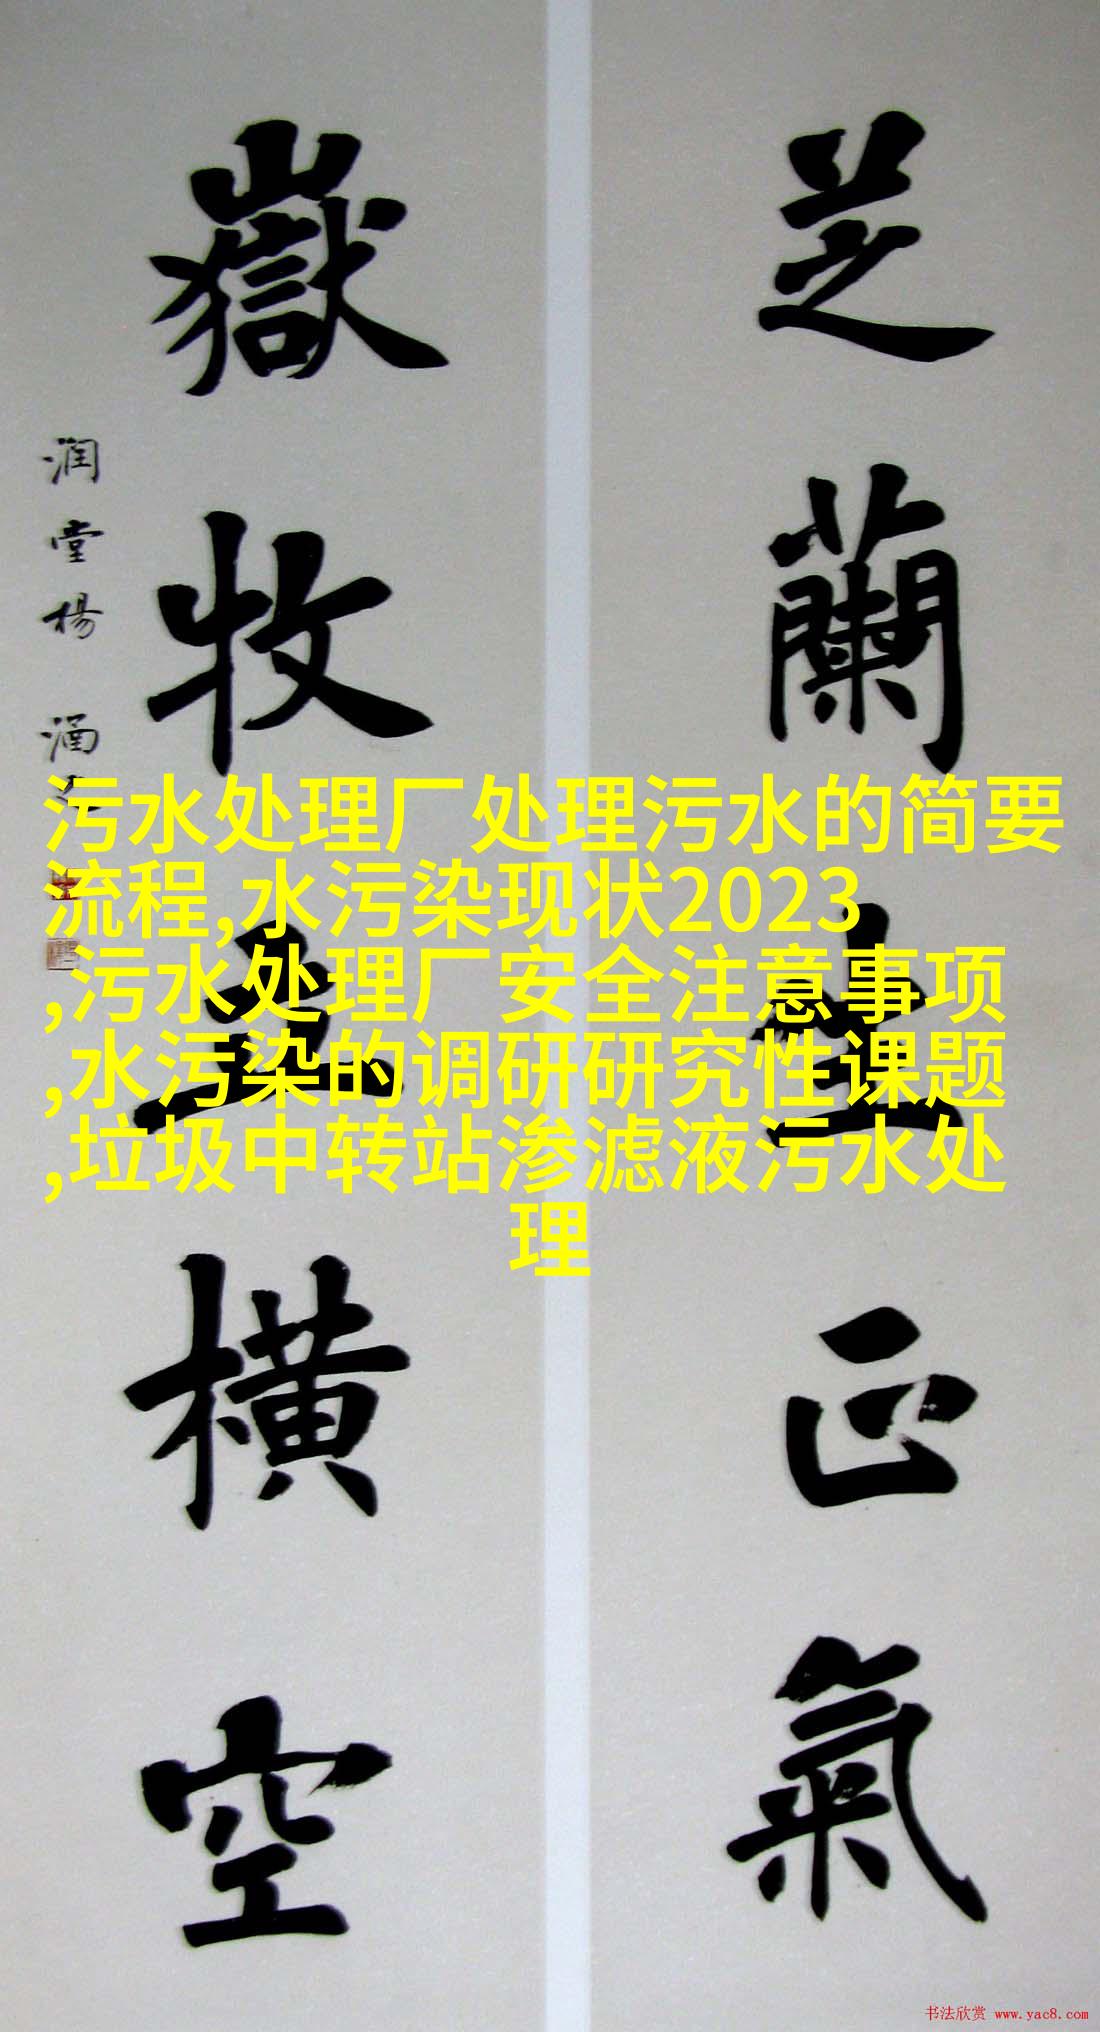 芝蘭生正氣
嶽牧立橫空
润堂楊涵
污水处理厂处理污水的简要
流程,水污染现状2023
,污水处理厂安全注意事项
,水污染的调研研究性课题
,垃圾中转站渗滤液污水处
理
书法欣赏 www.yac8.com